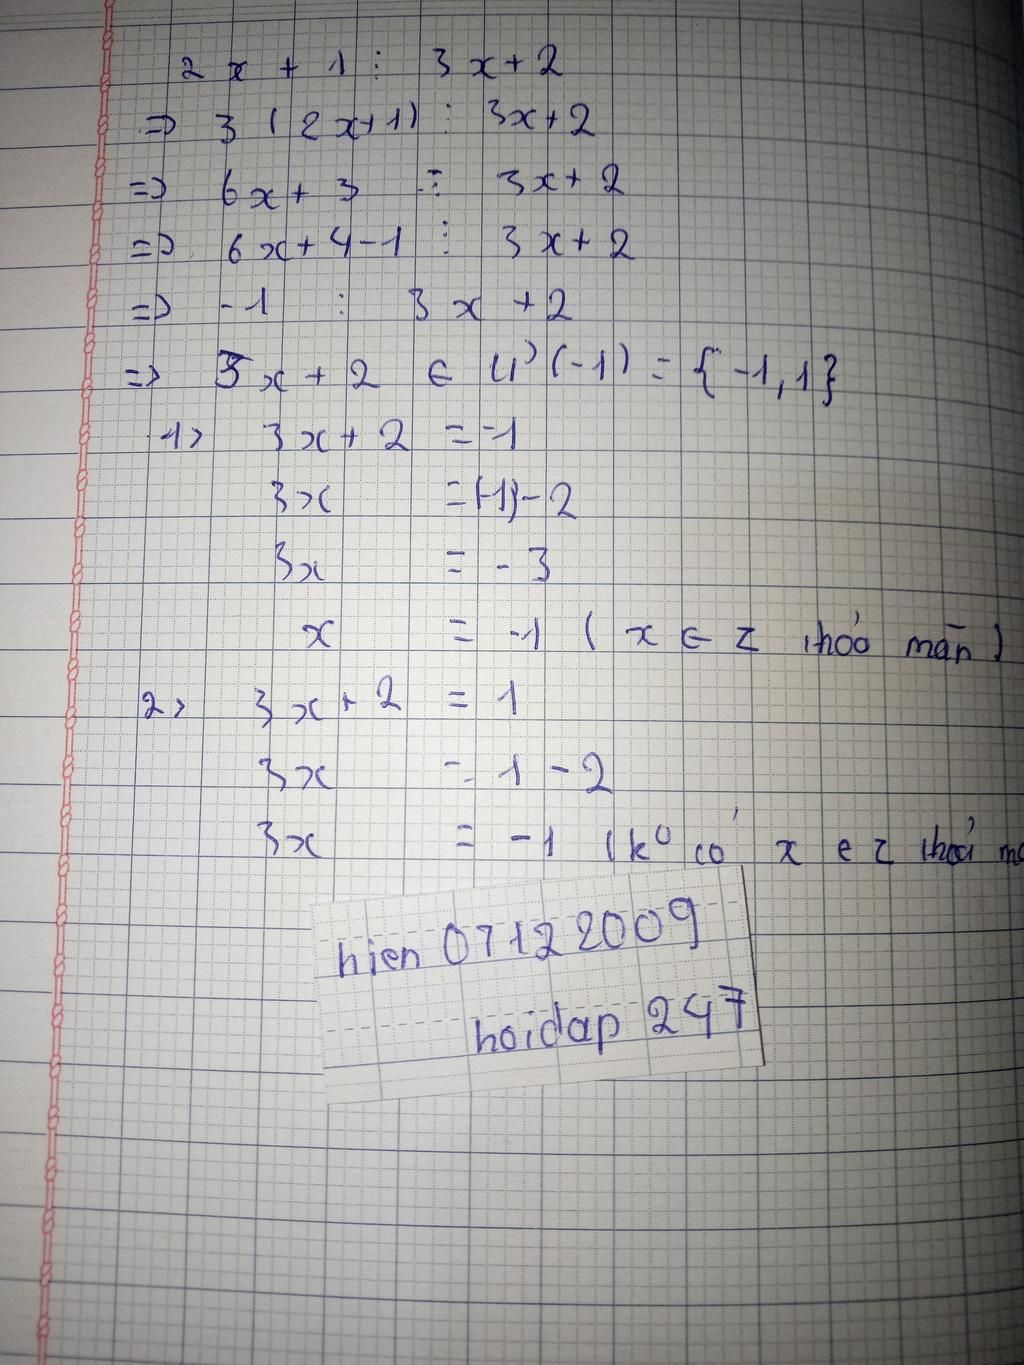 2x + 1 ⋮ 3x + 2
=> 3 (2x+1) ⋮ 3x+2
=> 6x + 3 ⋮ 3x + 2
=> 6x + 4 - 1 ⋮ 3x + 2
=> -1 ⋮ 3x + 2
=> 3x + 2 ∈ Ư(-1) = {-1, 1}
1> 3x + 2 = -1
3x = (-1) - 2
3x = - 3
x = -1 ( x ∈ Z thỏa mãn )
2> 3x + 2 = 1
3x = 1 - 2
3x = -1 (k° có x ∈ Z thỏa
hien 07122009
hoidap 247